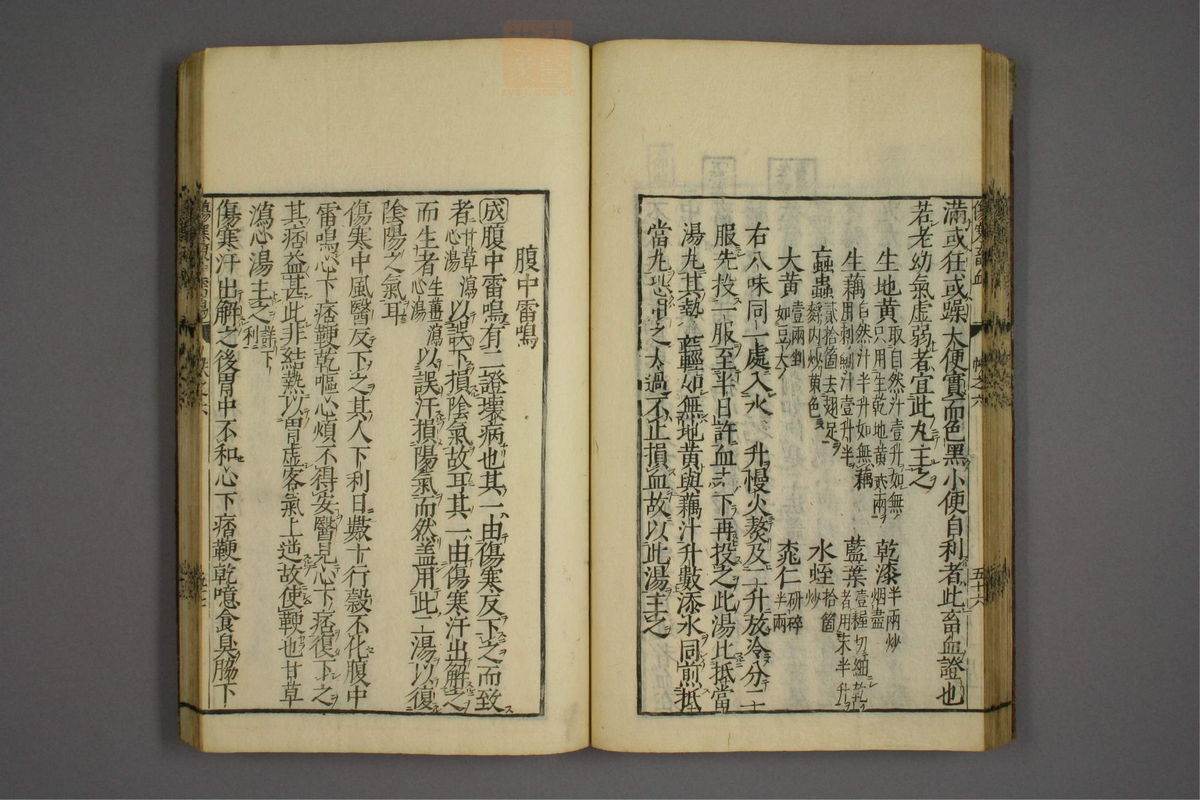 滿或狂或躁大便實而色黑小便自利者此畜血證也
若老幼氣虛弱者宜此丸主之
生地黄取自然汁壹升如無只用生乾地黄貳兩 乾漆半兩炒烟盡
生藕自然汁半升如無藕用刺薊汁壹升半 藍葉壹握切細乾者用末半升
蝱蟲貳拾箇去翅足麩内炒黄色 水蛭拾箇炒
大黄壹兩剉如豆大 桃仁研碎半兩
右八味同一處入水 升慢火熬及二升放冷分二
服先投一服至半日許血未下再投之此湯比抵當
湯丸其勢甚輕如無地黄與藕汁升數添水同煎抵
當丸恐用之太過不止損血故以此湯主之
腹中雷鳴
成腹中雷鳴有二證壞病也其一由傷寒反下之而致
者甘草瀉心湯以誤下損陰氣故耳其一由傷寒汗出解之
而生者生薑瀉心湯以誤汗損陽氣而然蓋用此二湯以復
陰陽之氣耳
傷寒中風醫反下之其人下利日數十行穀不化腹中
雷鳴心下痞鞕乾嘔心煩不得安醫見心下痞復下之
其痞益甚此非結熱以胃虛客氣上逆故使鞕也甘草
瀉心湯主之詳下利
傷寒汗出解之後胃中不和心下痞鞕乾噫食臭脇下